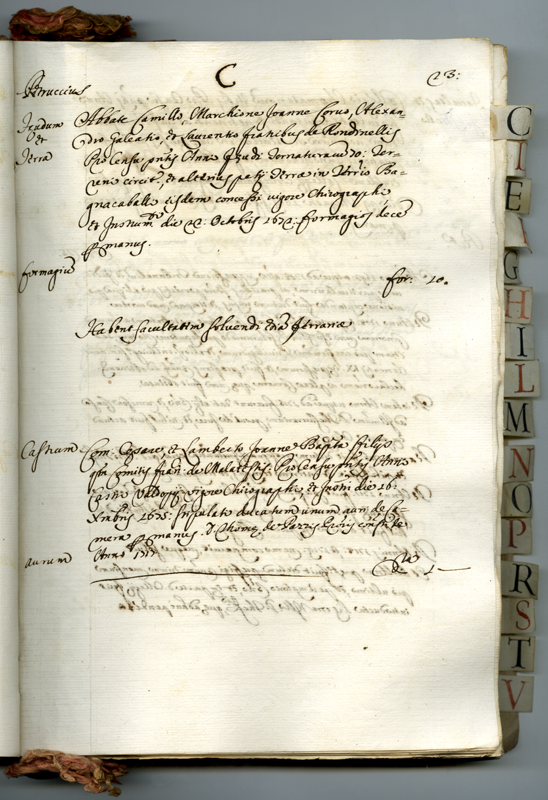 C
23:
Petruccius
Fundum
et
Terra
Abbate Camillo, Marchione Joanne Corvo, Alexan-
dro Galeatio, et Laurentio fratribus de Rondinellis
Pro Censu pntis Anni fundi Tornaturarum 70: Ter-
circiter, et alterius petij Terræ in Terrio Ba-
gnacaballi eisdem concessi vigore Chirographi
et Instrum.ti die 22: Octobris 1672: formagios dece
manus.
formagius
for: 10.
Habent facultatem solvendi etiã ferrariæ
Castrum
Com: Cesare, et Lamberto Joanne Bapta filijs
qm Comitis fran: de Malatestis. Pro Censu pntis Anni
Castri vigore Chirographi, et Instri die 16
Xmbris 1675: Insolato ducatum unum auri de Ca-
mera manus D. Thomæ de
Anno 1717
aurum
1
C
I
E
A
G
H
I
L
M
N
O
P
R
S
T
V